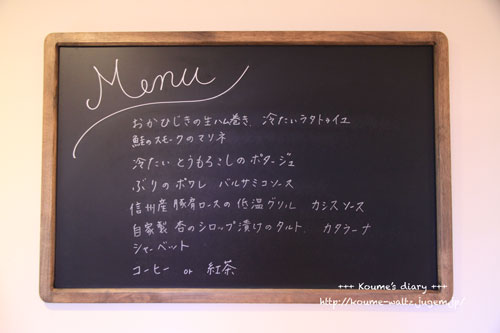 Menu
おかひじきの生ハム巻き、冷たいラタトゥイユ
鮭のスモークのマリネ
冷たい とうもろこしのポタージュ
ぶりのポワレ バルサミコソース
信州産 豚肩ロースの低温グリル カシスソース
自家製 杏のシロップ漬けのタルト、カタラーナ
シャーベット
コーヒー or 紅茶
+++ Koume's diary +++
http://koume-waltz.jugem.jp/